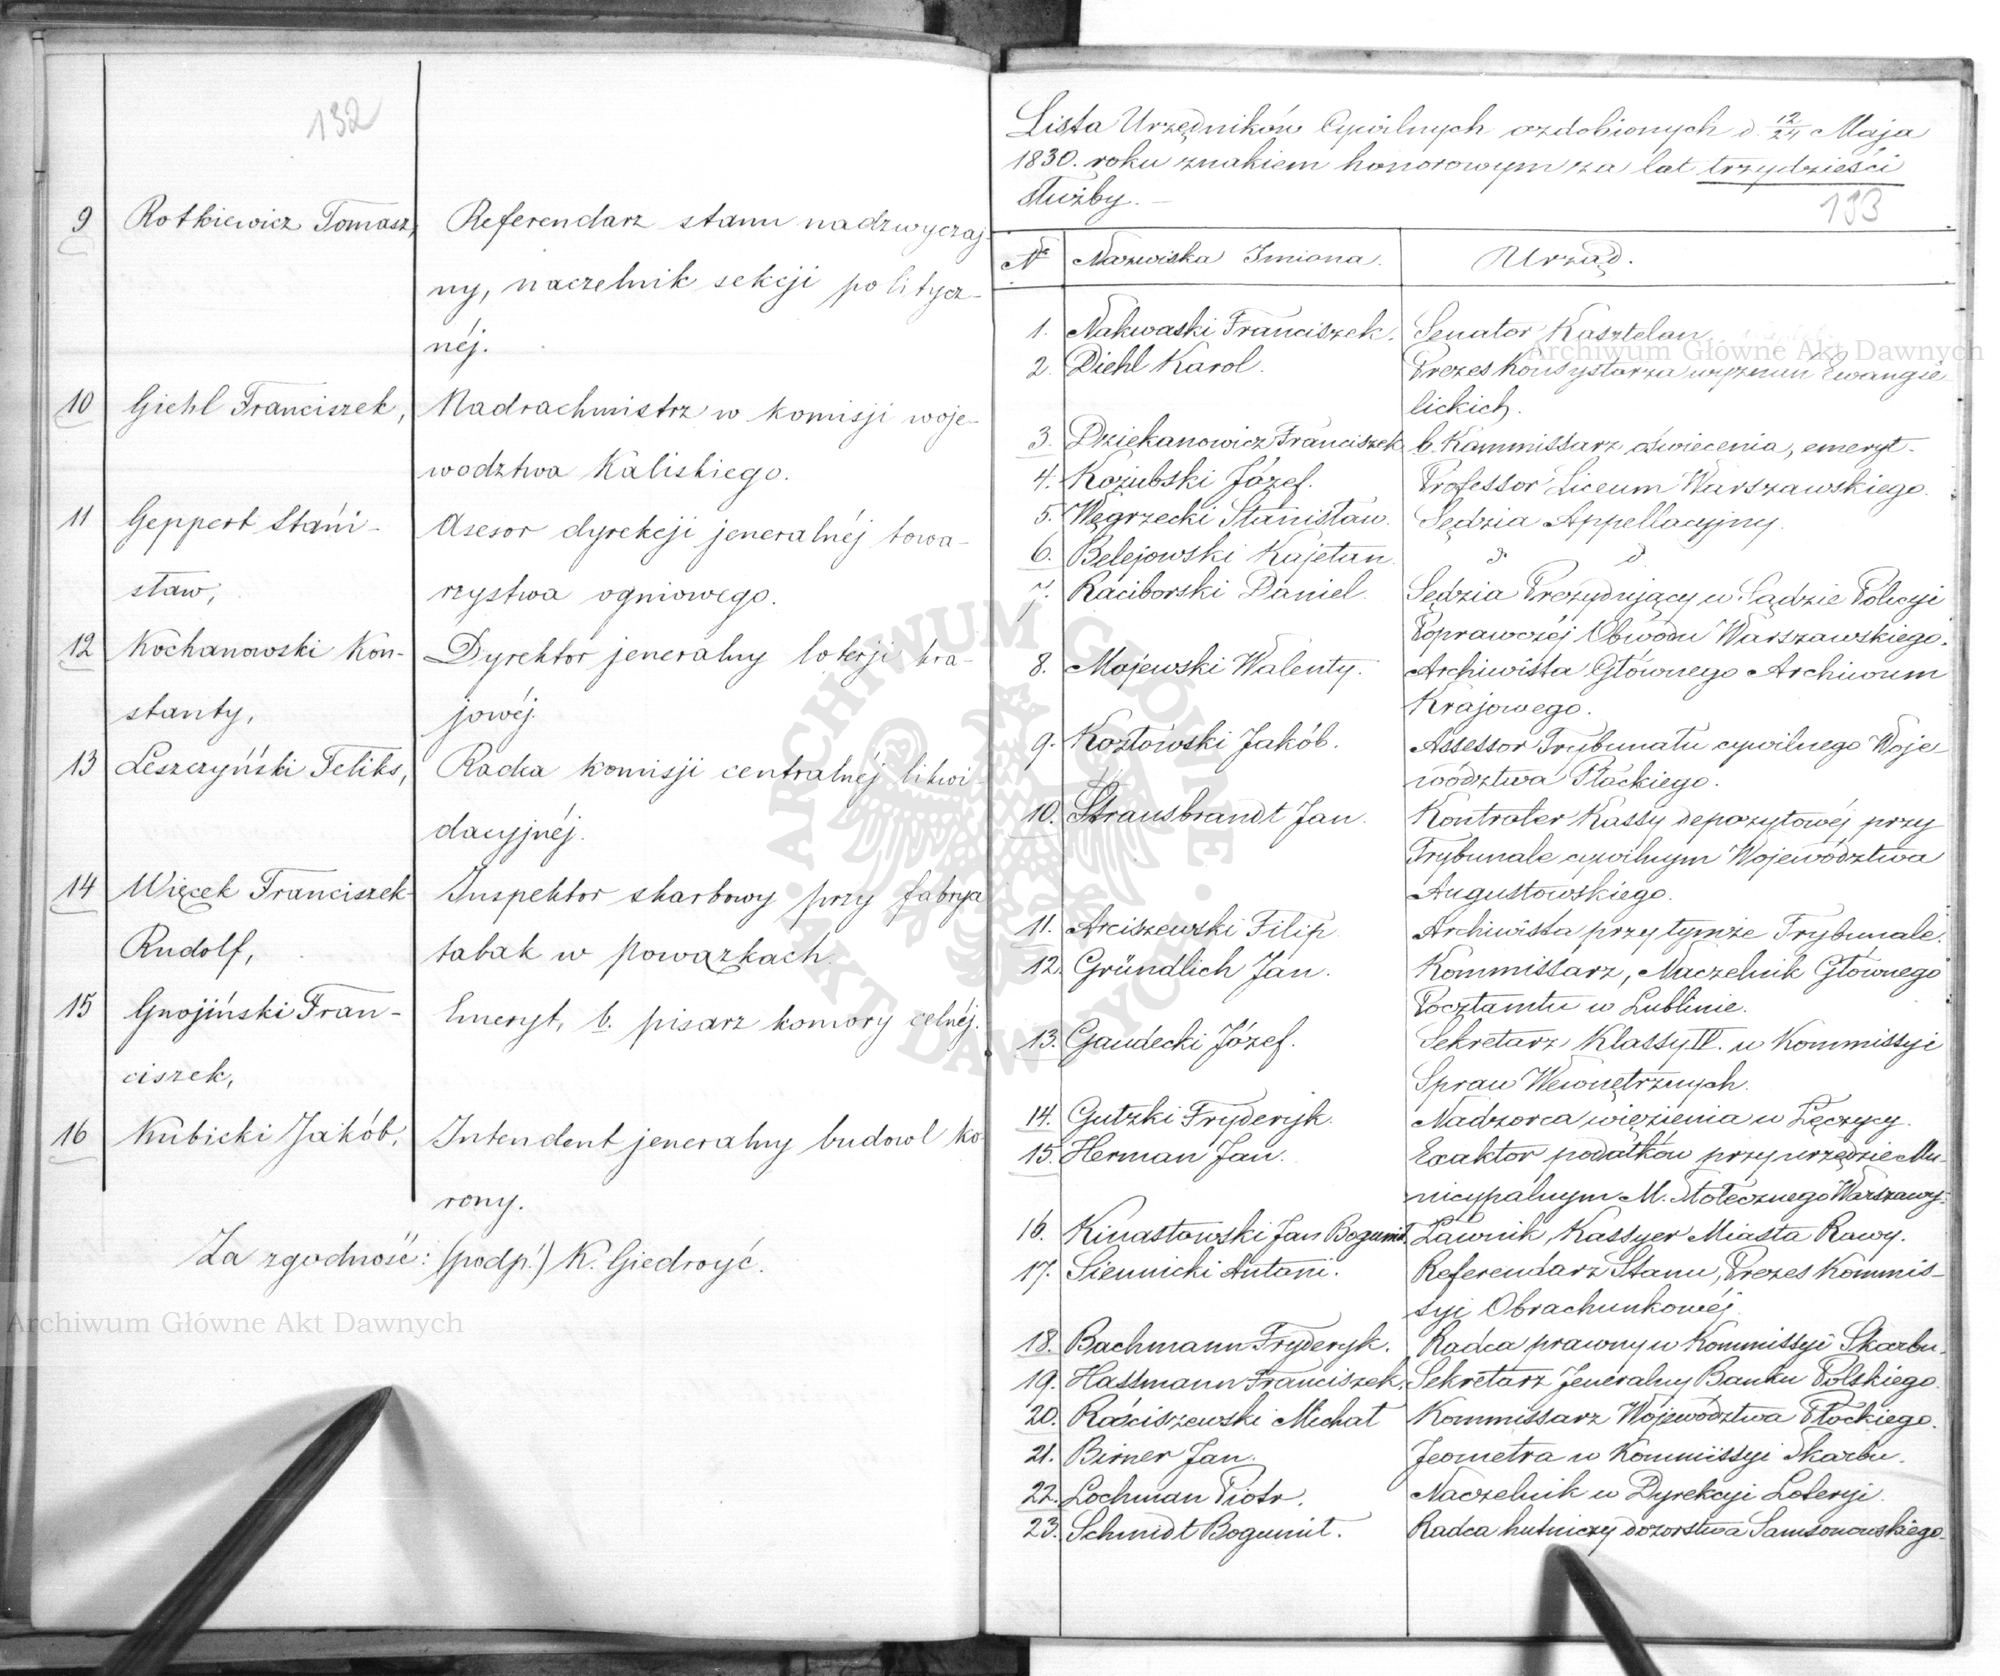 132
9 Rotkiewicz Tomasz, Referendarz stanu nadzwyczaj-
ny, naczelnik sekcji politycz-
néj.
10 Giehl Franciszek, Nadrachmistrz w komisji woje-
wodztwa Kaliskiego.
11 Geppert Stani- Asesor dyrekcji jeneralnéj towa-
sław, rzystwa ogniowego.
12 Kochanowski Kon- Dyrektor jeneralny loterji kra-
stanty, jowéj.
13 Leszczyński Feliks, Radca komisji centralnéj likwi-
dacyjnéj.
14 Więcek Franciszek- Inspektor skarbowy przy fabryce
Rudolf, tabak w Powązkach.
15 Gnojiński Fran- Emeryt, b. pisarz komory celnéj.
ciszek,
16 Kubicki Jakób, Intendent jeneralny budowl ko-
rony.
Za zgodność: (podp.) K. Giedroyć.
Archiwum Główne Akt Dawnych
Lista Urzędników Cywilnych ozdobionych d. 12/24 Maja
1830. roku znakiem honorowym za lat trzydzieści
służby. —
133
№ Nazwiska Imiona. Urząd.
1. Nakwaski Franciszek. Senator Kasztelan
Archiwum Główne Akt Dawnych
2. Diehl Karol. Prezes Konsystorza wyznań Ewangie-
lickich.
3. Dziekanowicz Franciszek b. Kommissarz oświecenia, emeryt.
4. Kozubski Józef. Professor Liceum Warszawskiego.
5. Węgrzecki Stanisław. Sędzia Appellacyjny.
6. Belejowski Kajetan d d
7. Raciborski Daniel Sędzia Prezydujący w Sądzie Policyi
Poprawczéj Obwodu Warszawskiego.
8. Majewski Walenty. Archiwista Głównego Archiwum
Krajowego.
9. Kozłowski Jakób. Assessor Trybunału cywilnego Woje-
wództwa Płockiego.
10. Strausbrandt Jan. Kontroler Kassy depozytowéj przy
Trybunale cywilnym Województwa
Augustowskiego.
11. Arciszewski Filip Archiwista przy tymże Trybunale.
12. Gründlich Jan. Kommissarz, Naczelnik Głównego
Pocztamtu w Lublinie.
13. Gaudecki Józef. Sekretarz Klassy IV. w Kommissyi
Spraw Wewnętrznych.
14. Gutzki Fryderyk. Nadzorca więzienia w Łęczycy.
15. Herman Jan. Exaktor podatków przy urzędzie Mu-
nicypalnym M. Stołecznego Warszawy.
16. Kinastowski Jan Bogumił. Ławnik, Kassyer Miasta Rawy.
17. Siennicki Antoni. Referendarz Stanu, Prezes Kommis-
syi Obrachunkowéj
18. Bachmann Fryderyk. Radca prawny w Kommissyi Skarbu.
19. Hassmann Franciszek. Sekretarz Jeneralny Banku Polskiego.
20. Rościszewski Michał Kommissarz Województwa Płockiego.
21. Birner Jan. Jeometra w Kommissyi Skarbu.
22. Lochman Piotr. Naczelnik w Dyrekcyi Loteryi.
23. Schmidt Bogumił. Radca hutniczy dozorstwa Samsonowskiego.
ARCHIWUM GŁÓWNE
AKT DAWNYCH